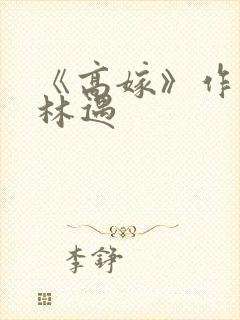 《高嫁》作
林遇
李铮